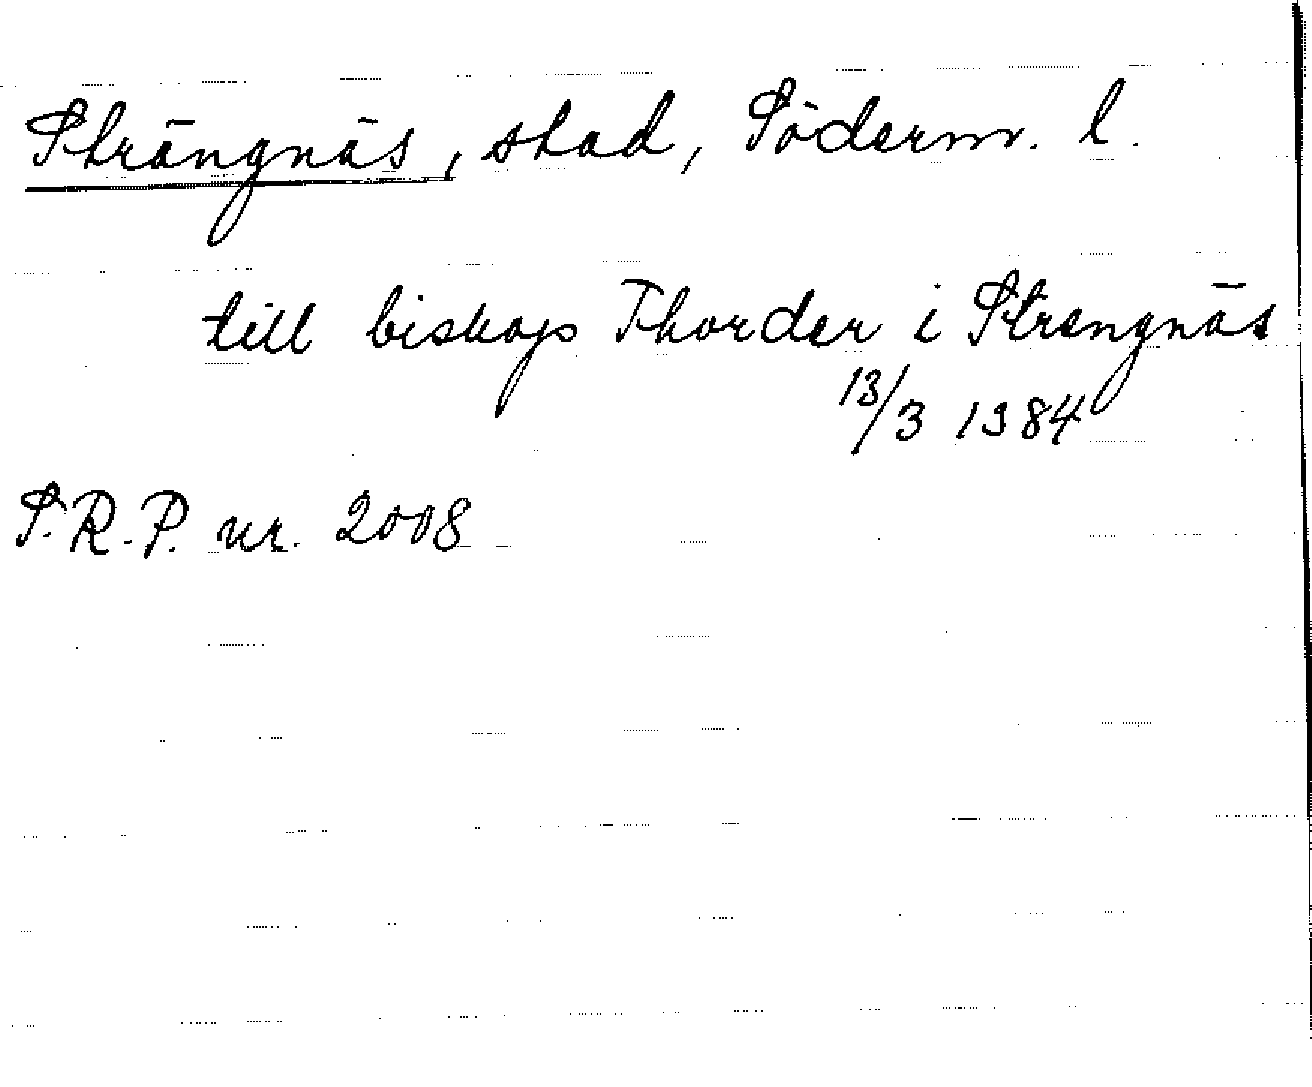 Strängnäs, stad, Söderm. l.
till biskop Thorder i Strengnäs
13/3 1384
S.R.P. nr. 2008